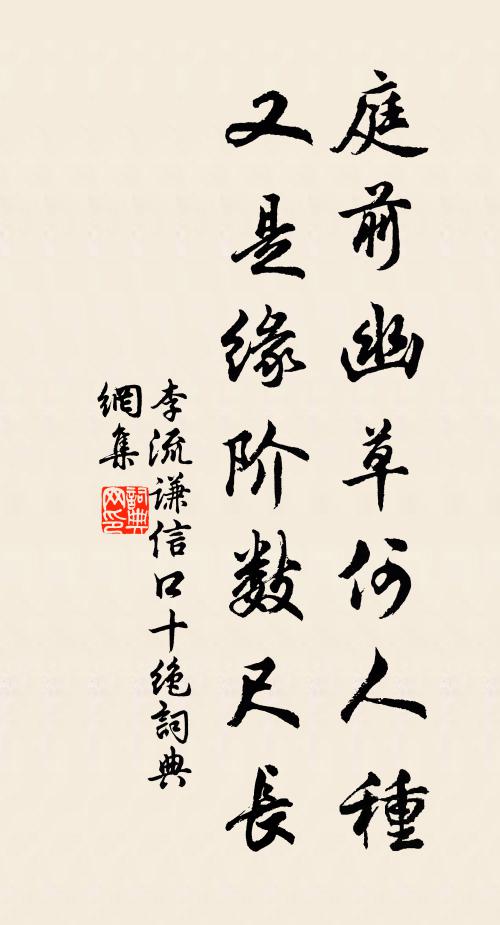 庭前幽草何人種
又是缘阶数尺長
李流谦信口十绝詞典
網集
詞典網印